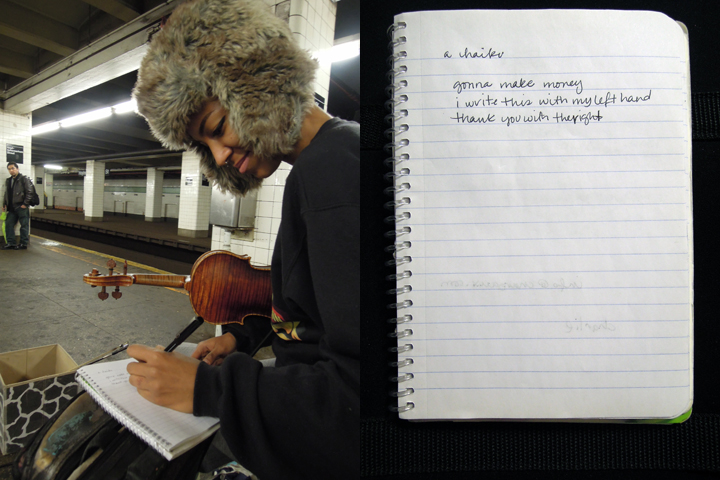 a haiku
gonna make money
i write this with my left hand
thank you with the right